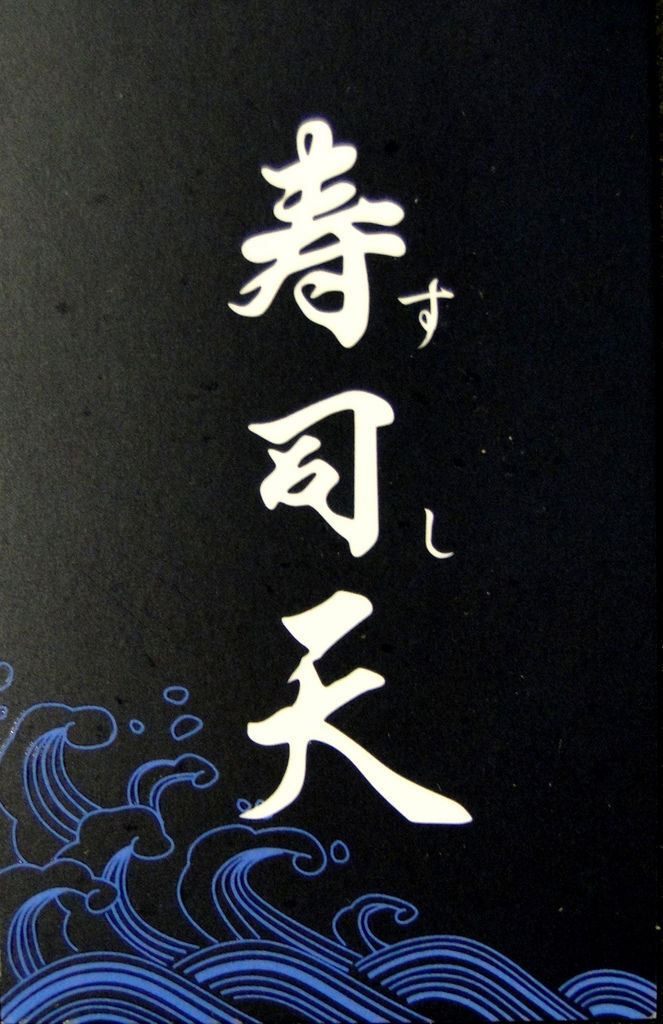 寿司天
すし